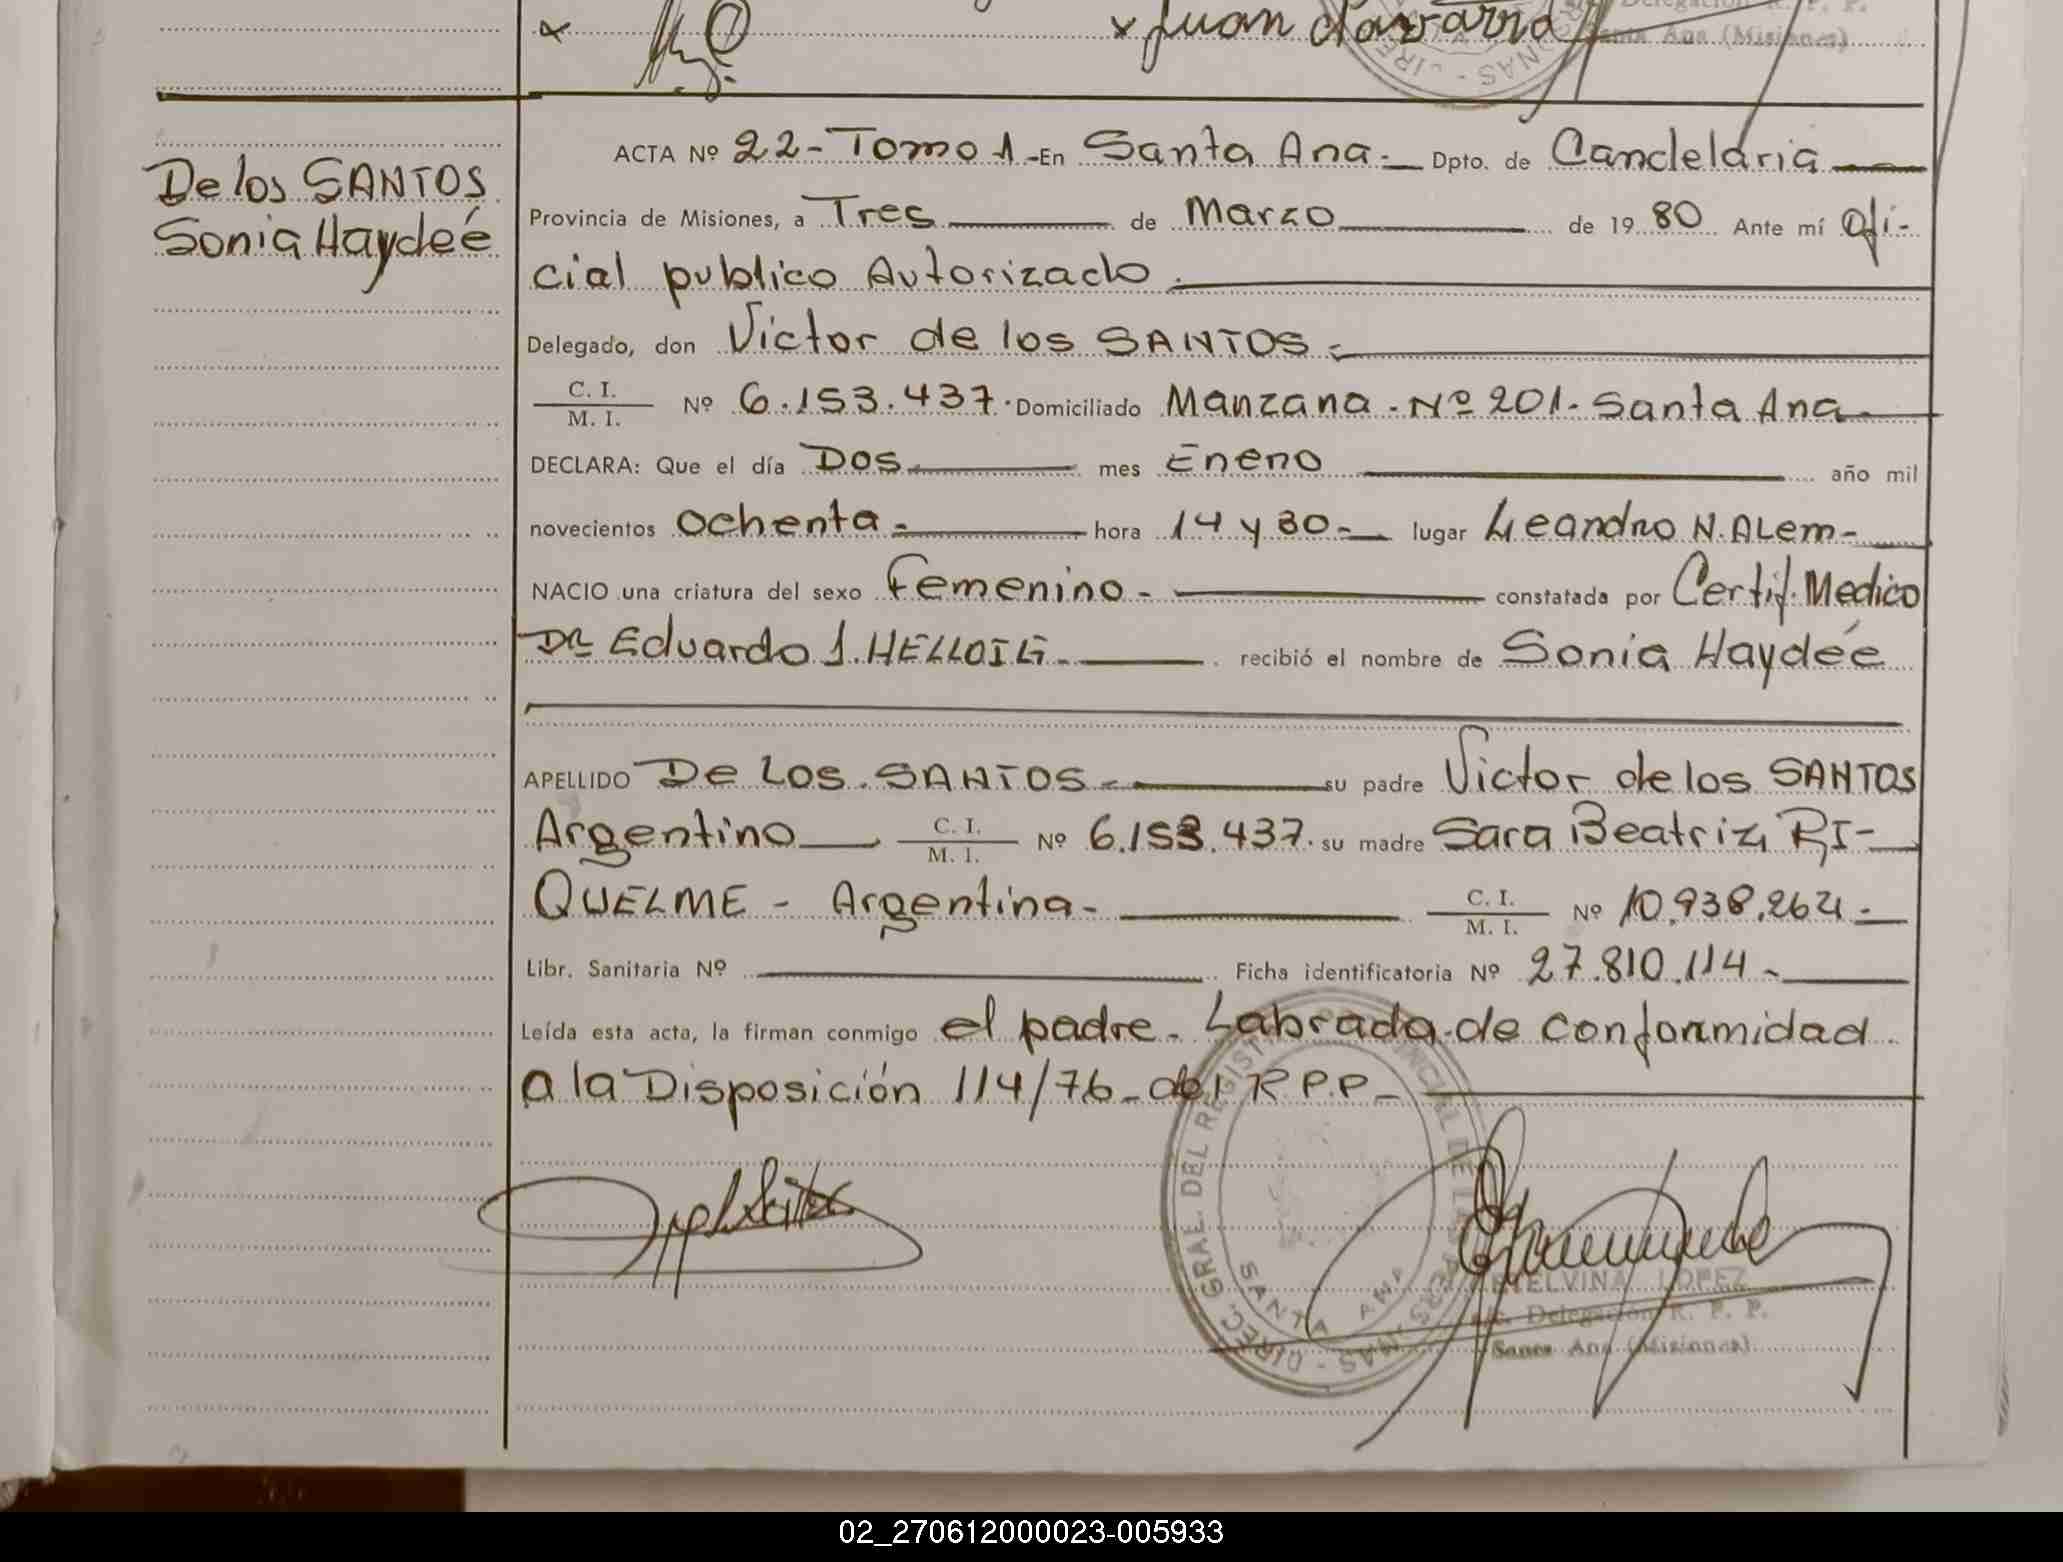 x x Juan Navarro
Santa Ana (Misiones)
De los SANTOS
Sonia Haydeé
ACTA Nº 22- Tomo 1 - En Santa Ana.- Dpto. de Candelaria
Provincia de Misiones, a Tres de Marzo de 1980 Ante mí Ofi-
cial publico Autorizado.
Delegado, don Victor de los SANTOS.-
C. I. / M. I. Nº 6.153.437. Domiciliado Manzana - Nº 201. Santa Ana
DECLARA: Que el día Dos mes Enero año mil
novecientos ochenta.- hora 14 y 30.- lugar Leandro N. ALem-
NACIO una criatura del sexo Femenino - constatada por Certif. Medico
Dr Eduardo J. HELLOIG.- recibió el nombre de Sonia Haydée
APELLIDO De Los. SANTOS.- su padre Victor de los SANTOS
Argentino C. I. / M. I. Nº 6.153.437. su madre Sara Beatriz RI-
QUELME - Argentina- C. I. / M. I. Nº 10.938.264.-
Libr. Sanitaria Nº Ficha identificatoria Nº 27.810.114-
Leída esta acta, la firman conmigo el padre. Labrada de conformidad
a la Disposición 114/76 - del R P.P.-
DIREC. GRAL. DEL REGISTRO PROVINCIAL DE LAS PERSONAS
SANTA ANA
ETELVINA LOPEZ
Delegación R. P. P.
Santa Ana (Misiones)
02_270612000023-005933